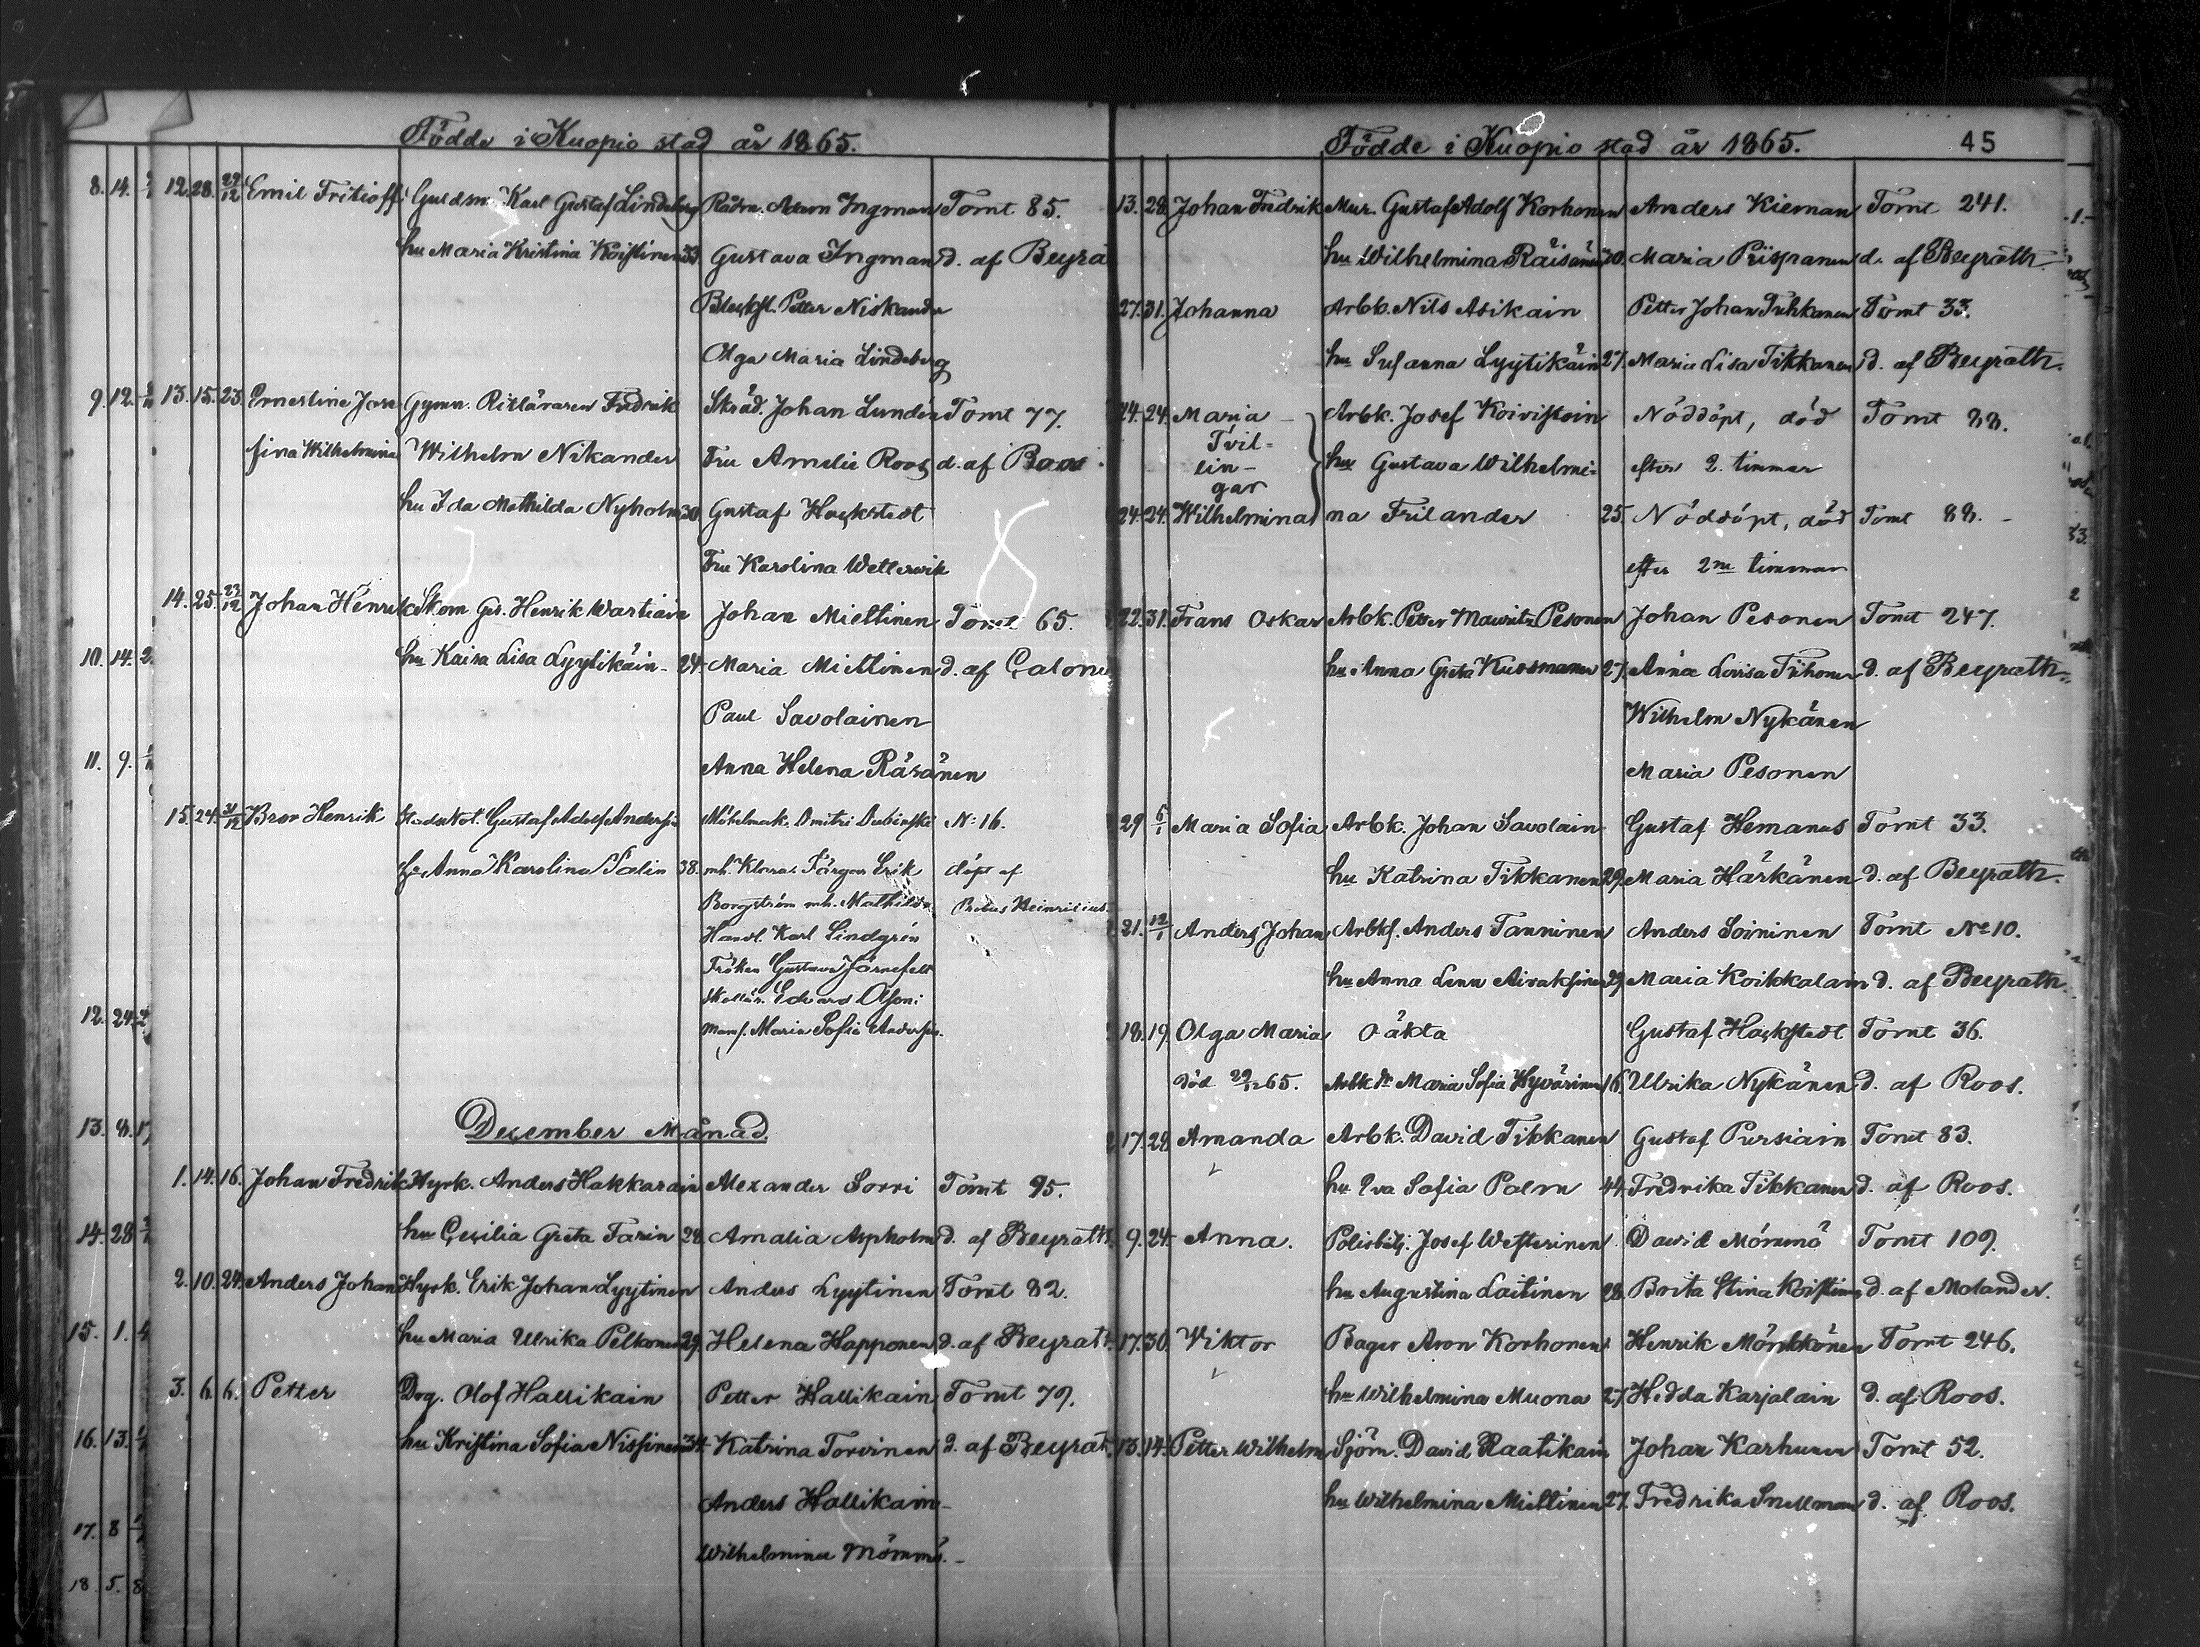 Födde i Kuopio stad år 1865.
12. 28. 29/12 Emil Fritioff Guldsm. Karl Gustaf Lindeberg Rådm. Adam Ingman Tomt 85.
hu Maria Kristina Koistinen 33 Gustava Ingman d. af Beyra
Petter Niskander
Olga Maria Lindeberg
13. 15. 23. Ernestine Jose Gymn. Ritläraren Fredrik Skräd. Johan Lundén Tomt 77.
fina Wilhelmina Wilhelm Nikander Fru Amelie Roos d. af Roos
hu Ida Mathilda Nyholm 30 Gustaf Hackstedt
Fru Karolina Wetterwik
14. 25. Johan Henrik Skom. Ges. Henrik Wartiain Johan Miettinen Tomt 65.
hu Kaisa Lisa Lyytikäin 24. Maria Miettinen d. af Calone
Paul Savolainen
Anna Helena Räsänen
15. 24. Bror Henrik Gustaf Adolf Möbelmak. Dmitri N: 16.
Anna Karolina 38. mh. Klara. Färgar Erik döpt af
Borgström mh. Mathilda
Handl. Karl Lindgrén
Fröken Gustava Järnefelt
Edvard
Mams. Maria Sofia
December Månad.
1. 14. 16. Johan Fredrik Hyrk. Anders Hakkarain Alexander Sorri Tomt 95.
hu Cecilia Greta Farin 28. Amalia Aspholm d. af Beyrath.
2. 10. 24. Anders Johan Hyrk. Erik Johan Lyytinen Anders Lyytinen Tomt 82.
hu Maria Ulrika Pelkonen 29. Helena Happonen d. af Beyrath.
3. 6. 6. Petter Drg. Olof Hallikain Petter Hallikain Tomt 79.
hu Kristina Sofia Nissinen 34. Katrina Torvinen d. af Beyrat
Anders Hallikain
Wilhelmina Mömmö.
8. 14.
9. 12.
10. 14. 2
11. 9.
12. 24.
13. 8. 17
14. 28
15. 1. 4
16. 13.
17. 8
18. 5. 8
Födde i Kuopio stad år 1865. 45
13. 28. Johan Fredrik Mur. Gustaf Adolf Korhonen Anders Kieman Tomt 241.
hu Wilhelmina Räisänen 20. Maria Piispanen d. af Beyrath.
27. 31. Johanna Arbk. Nils Asikain Petter Johan Tuhkanen Tomt 33.
hu Susanna Lyytikäin 27. Maria Lisa Tikkanen d. af Beyrath.
24. 24. Maria Arbk. Josef Koivistoin Nöddöpt, död Tomt 88.
Tvil-
lin- hu Gustava Wilhelmi- efter 2. timmar
gar
24. 24. Wilhelmina na Frilander 25. Nöddöpt, död Tomt 88.
efter 2ne timmar
22. 31. Frans Oskar Arbk. Petter Mauritz Pesonen Johan Pesonen Tomt 247.
hu Anna Greta Kuosmanen 27. Anna Lovisa Tiihonen d. af Beyrath.
Wilhelm Nykänen
Maria Pesonen
29 6/1 Maria Sofia Arbk. Johan Savolain Gustaf Hemanus Tomt 33.
hu Katrina Tikkanen 29. Maria Härkänen d. af Beyrath.
21. 12/1 Anders Johan Arbk. Anders Tanninen Anders Soininen Tomt No 10.
hu Anna Lena Airaksinen 29. Maria Koikkalain d. af Beyrath.
18. 19. Olga Maria oäkta Gustaf Hackstedt Tomt 36.
död 29/12 65. Arbk. dr Maria Sofia Hyvärinen 16. Ulrika Nykänen d. af Roos.
17. 29. Amanda Arbk. David Tikkanen Gustaf Pursiain Tomt 83.
hu Eva Sofia Palm 44. Fredrika Tikkanen d. af Roos.
9. 24. Anna. Polisbetj. Josef Westerinen David Mömmö Tomt 109.
hu Augustina Laitinen 28. Brita Stina Koistinen d. af Molander.
17. 30. Viktor Bager Aron Korhonen Henrik Mönkkönen Tomt 246.
hu Wilhelmina Muona 27. Hedda Karjalain d. af Roos.
13. 14. Petter Wilhelm Sjöm. David Raatikain Johan Karhunen Tomt 52.
hu Wilhelmina Miettinen 27. Fredrika Snellman d. af Roos.